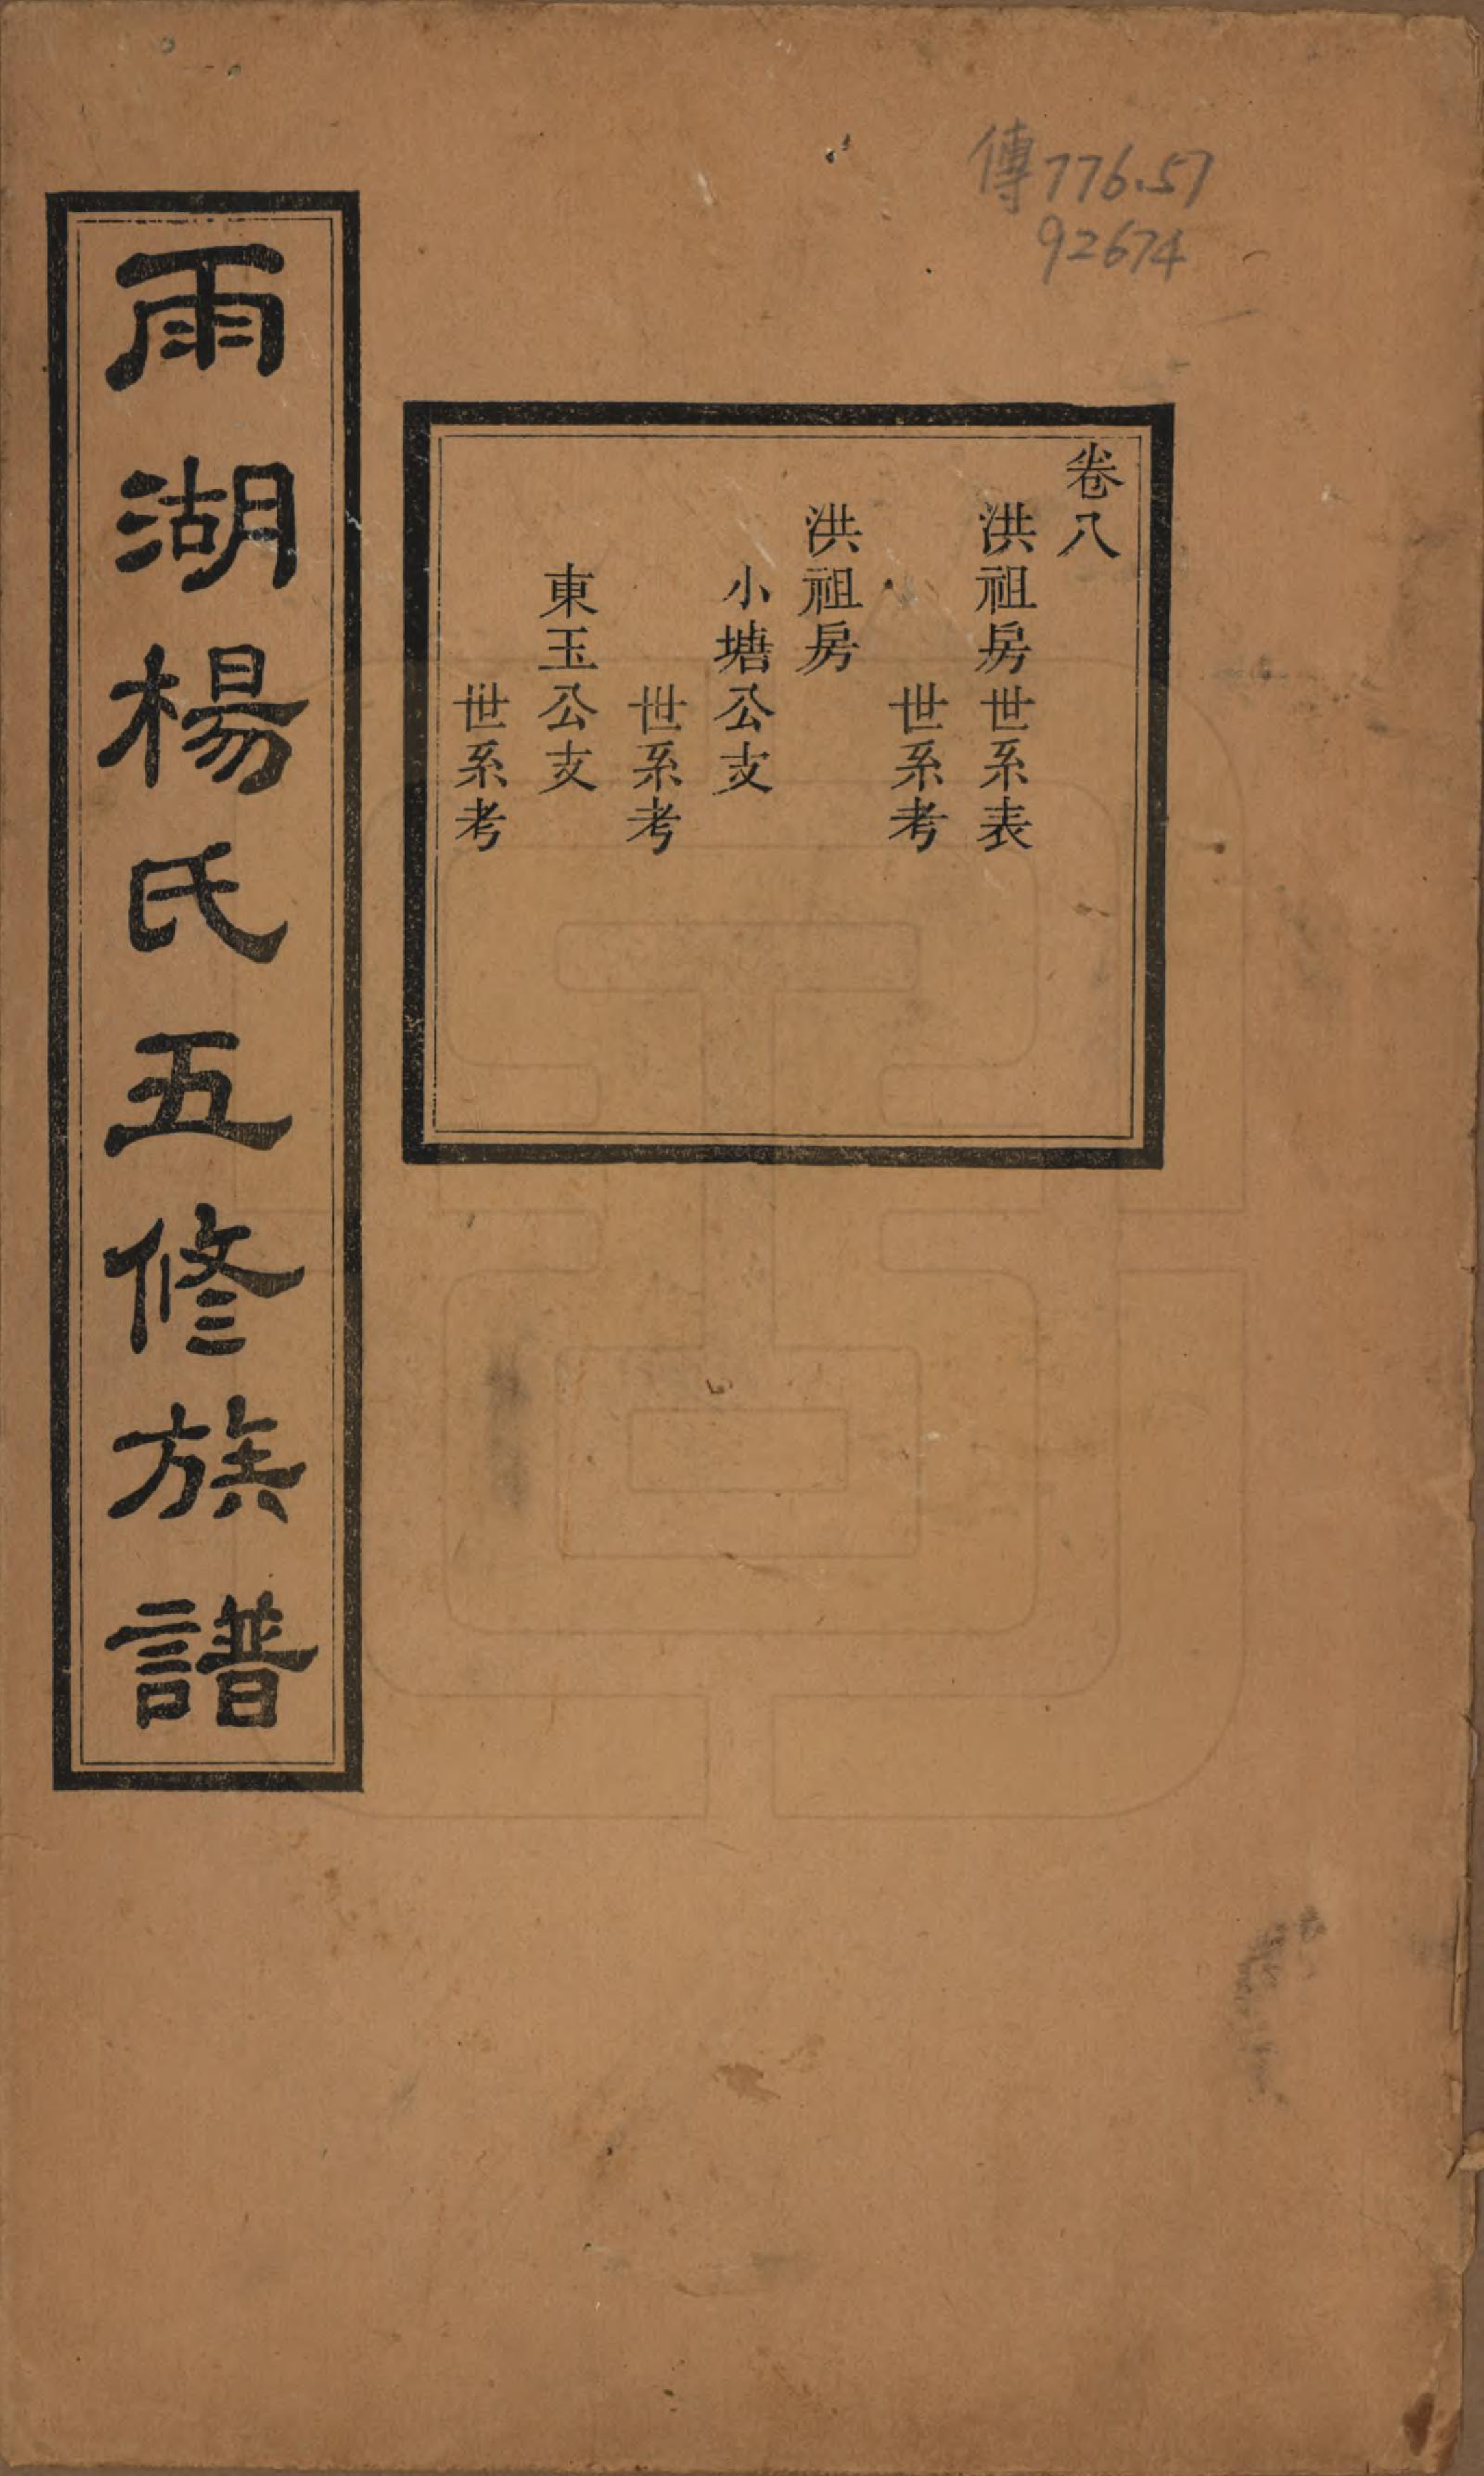 傳776.57
92674
卷八
洪祖房世系表
世系考
洪祖房
小塘公支
世系考
東玉公支
世系考
雨湖楊氏五修族譜